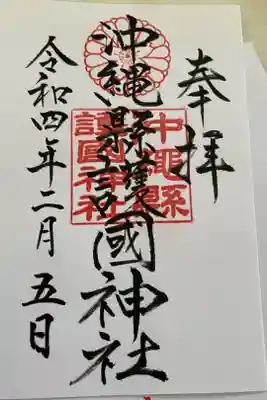 奉拝
沖縄縣護國神社
令和四年二月五日
沖縄縣護國神社